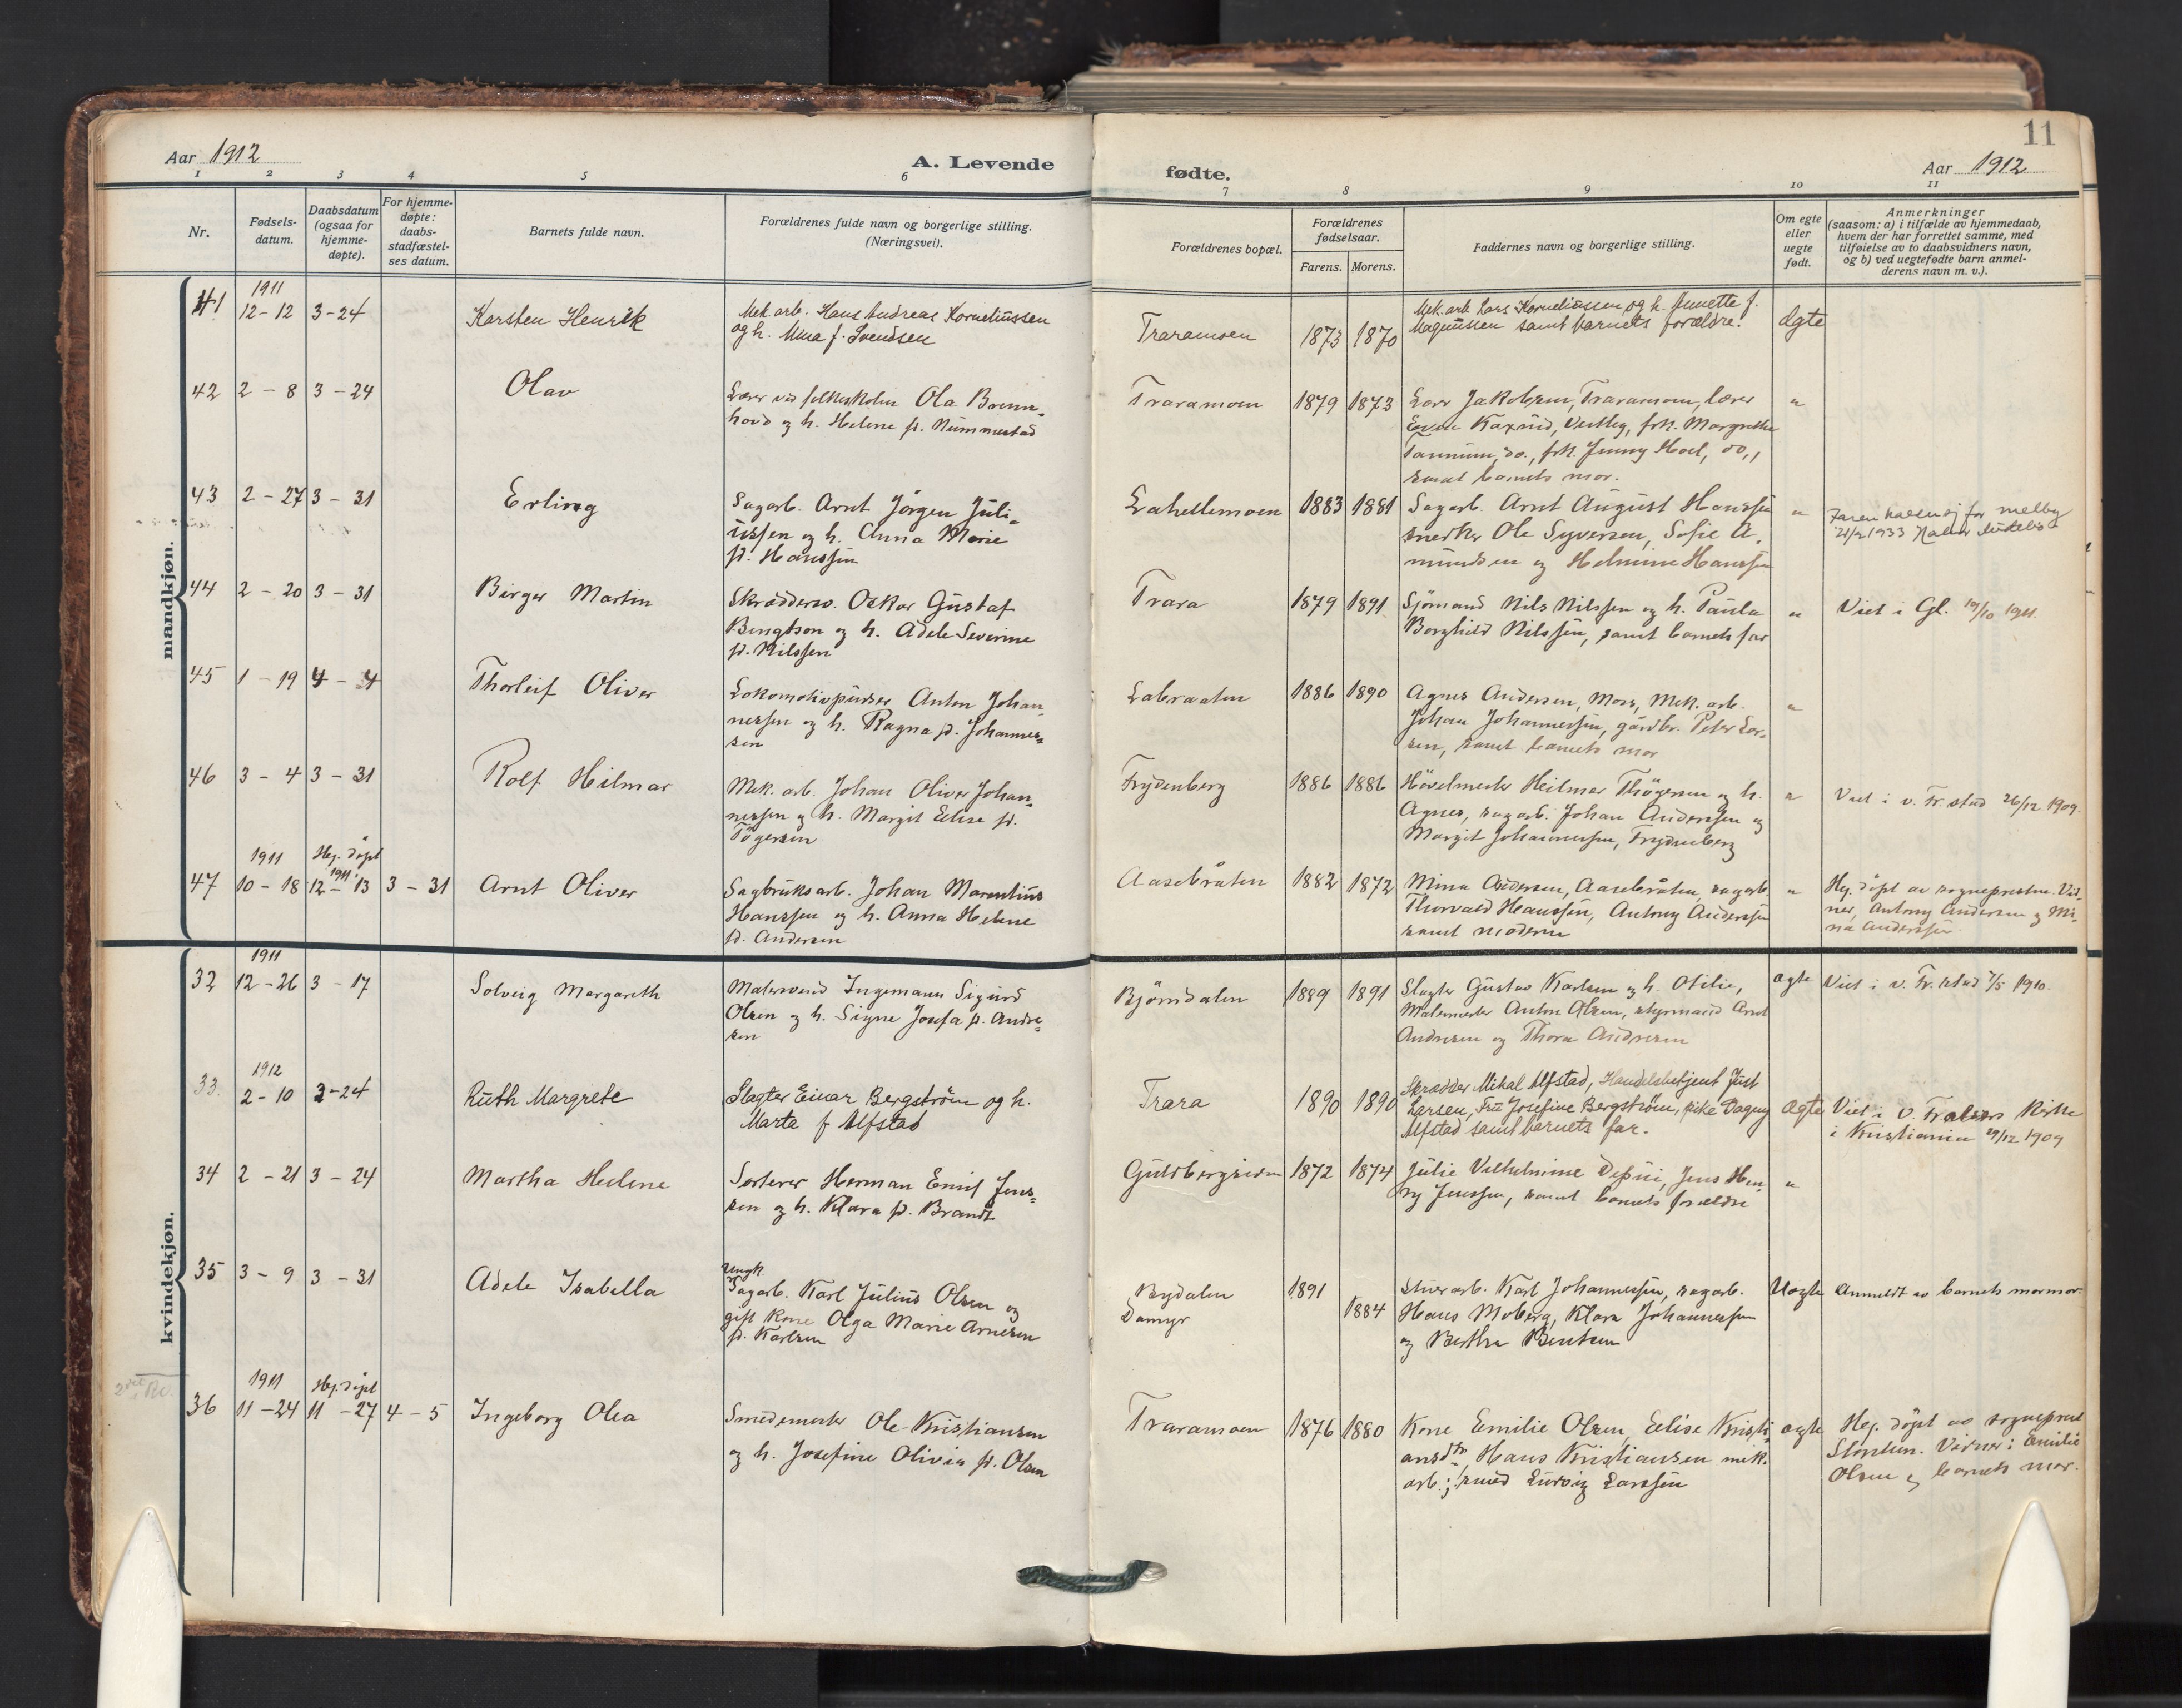 11
Aar 1912
A. Levende
fødte.
Aar 1912
1 2 3 4 5 6 7 8 9 10 11
Nr.
Fødsels-
datum.
Daabsdatum
(ogsaa for
hjemme-
døpte).
For hjemme-
døpte:
daabs-
stadfæstel-
ses datum.
Barnets fulde navn.
Forældrenes fulde navn og borgerlige stilling.
(Næringsvei).
Forældrenes bopæl.
Forældrenes
fødselsaar.
Farens. Morens.
Faddernes navn og borgerlige stilling.
Om egte
eller
uegte
født.
Anmerkninger
(saasom: a) i tilfælde av hjemmedaab,
hvem der har forrettet samme, med
tilføielse av to daabsvidners navn,
og b) ved uegtefødte barn anmel-
derens navn m. v.).
mandkjøn.
1911
41 12-12 3-24
Karsten Henrik
Mek. arb. Hans Andreas Korneliussen
og h. Mina f. Svendsen
Traramoen
1873 1870
Mek. arb. Lars Korneliussen og h. Annette f.
Magnussen samt barnets forældre.
ægte
42 2 - 8 3 - 24
Olav
Lærer ved folkeskolen Ola Brenn-
hovd og h. Helene fd. Nummestad
Traramoen
1879 1873
Lars Jakobsen, Traramoen, lærer
frk. Margrethe
do., frk. Jenny Hoel, do.,
samt barnets mor.
"
43 2 - 27 3 - 31
Erling
Sagarb. Arnt Jørgen Juli-
ussen og h. Anna Marie
fd. Hanssen
Lahellemoen
1883 1881
Sagarb. Arnt August Hanssen
snedker Ole Syversen, Sofie A-
mundsen og Helmine Hanssen
"
Faren kaller sig for Melby
21/2 1933
44 2 - 20 3 - 31
Birger Martin
Skræddersv. Oskar Gustaf
Bengtson og h. Adele Severine
fd. Nilssen
Trara
1879 1891
Sjømand Nils Nilssen og h. Paula
Borghild Nilssen, samt barnets far
"
Viet i Gl. 19/10 1911.
45 1 - 19 4 - 4
Thorleif Oliver
Lokomotivpudser Anton Johan-
nessen og h. Ragna fd. Johannes-
sen
Labraaten
1886 1890
Agnes Andersen, Moss, Mek. arb.
Johan Johannessen, gårdbr. Peter Lar-
sen, samt barnets mor
"
46 3 - 4 3 - 31
Rolf Hilmar
Mek. arb. Johan Oliver Johan-
nessen og h. Margit Elise fd.
Tøgersen
Frydenberg
1886 1886
Høvelmester Heilmar Thøgersen og h.
Agnes, sagarb. Johan Anderssen og
Margit Johannessen, Frydenberg
"
Viet i v. Fr.stad 26/12 1909.
1911 Hj. døpt
1911
47 10 - 18 12 - 13 3 - 31
Arnt Oliver
Sagbruksarb. Johan Marentius
Hanssen og h. Anna Helene
fd. Andersen
Aasebråten
1882 1872
Mina Andersen, Aasebråten, sagarb.
Thorvald Hanssen, Antony Anderssen
samt moderen
"
Hj. døpt av sogneprestn. Vid-
ner, Antony Andersen og Mi-
na Anderssen.
kvindekjøn.
1911
32 12 - 26 3 - 17
Solveig Margareth
Malersvend Ingemann Sigurd
Olsen og h. Signe Josefa fd. Andre-
sen
Bjørndalen
1889 1891
Slagter Gustav Karlsen og h. Otilie,
Malermester Anton Olsen, styrmand Arnt
Andresen og Thora Andresen
ægte
Viet i v. Fr.stad 7/5 1910.
1912
33. 2 - 10 3 - 24
Ruth Margrete
Slagter Einar Bergstrøm og h.
Marta f Alfstad
Trara
1890 1890
Skrædder Mikal Alfstad, Handelsbetjent Just
Larsen, Fru Josefine Bergstrøm, pike Dagny
Alfstad samt barnets far.
ægte
Viet i V. Frelsers Kirke
i Kristiania 29/12 1909
34 2 - 21 3 - 24
Martha Helene
Sorterer Herman Emil Jens-
sen og h. Klara fd. Brandt
Guldbergsiden
1872 1874
Julie Vilhelmine Depui, Jens Hen-
ry Jenssen, samt barnets forældre
"
35 3 - 9 3 - 31
Adele Isabella
Ungk.
Sagarb. Karl Julius Olsen og
gift Kone Olga Marie Arnesen
fd. Karlsen
Rydalen
Damyr
1891
1884
Stuerarb. Karl Johannessen, sagarb.
Hans Moberg, Klara Johannessen
og Berthe Bentsen
Uægte
Anmeldt av barnets mormor.
1911 Hj. døpt
36 11 - 24 11 - 27 4 - 5
Ingeborg Olea
Smedemester Ole Kristiansen
og h. Josefine Olivia fd. Olsen
Traramoen
1876 1880
Kone Emilie Olsen, Elise Kristi-
ansdtr, Hans Kristiansen mek.
arb.; smed Ludvig Larssen
ægte
Hj. døpt av sogneprest
Vidner: Emilie
Olsen og barnets mor.